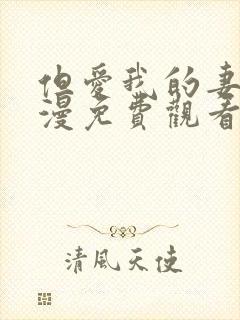 但愛我的妻
漫免費觀看
清風天使